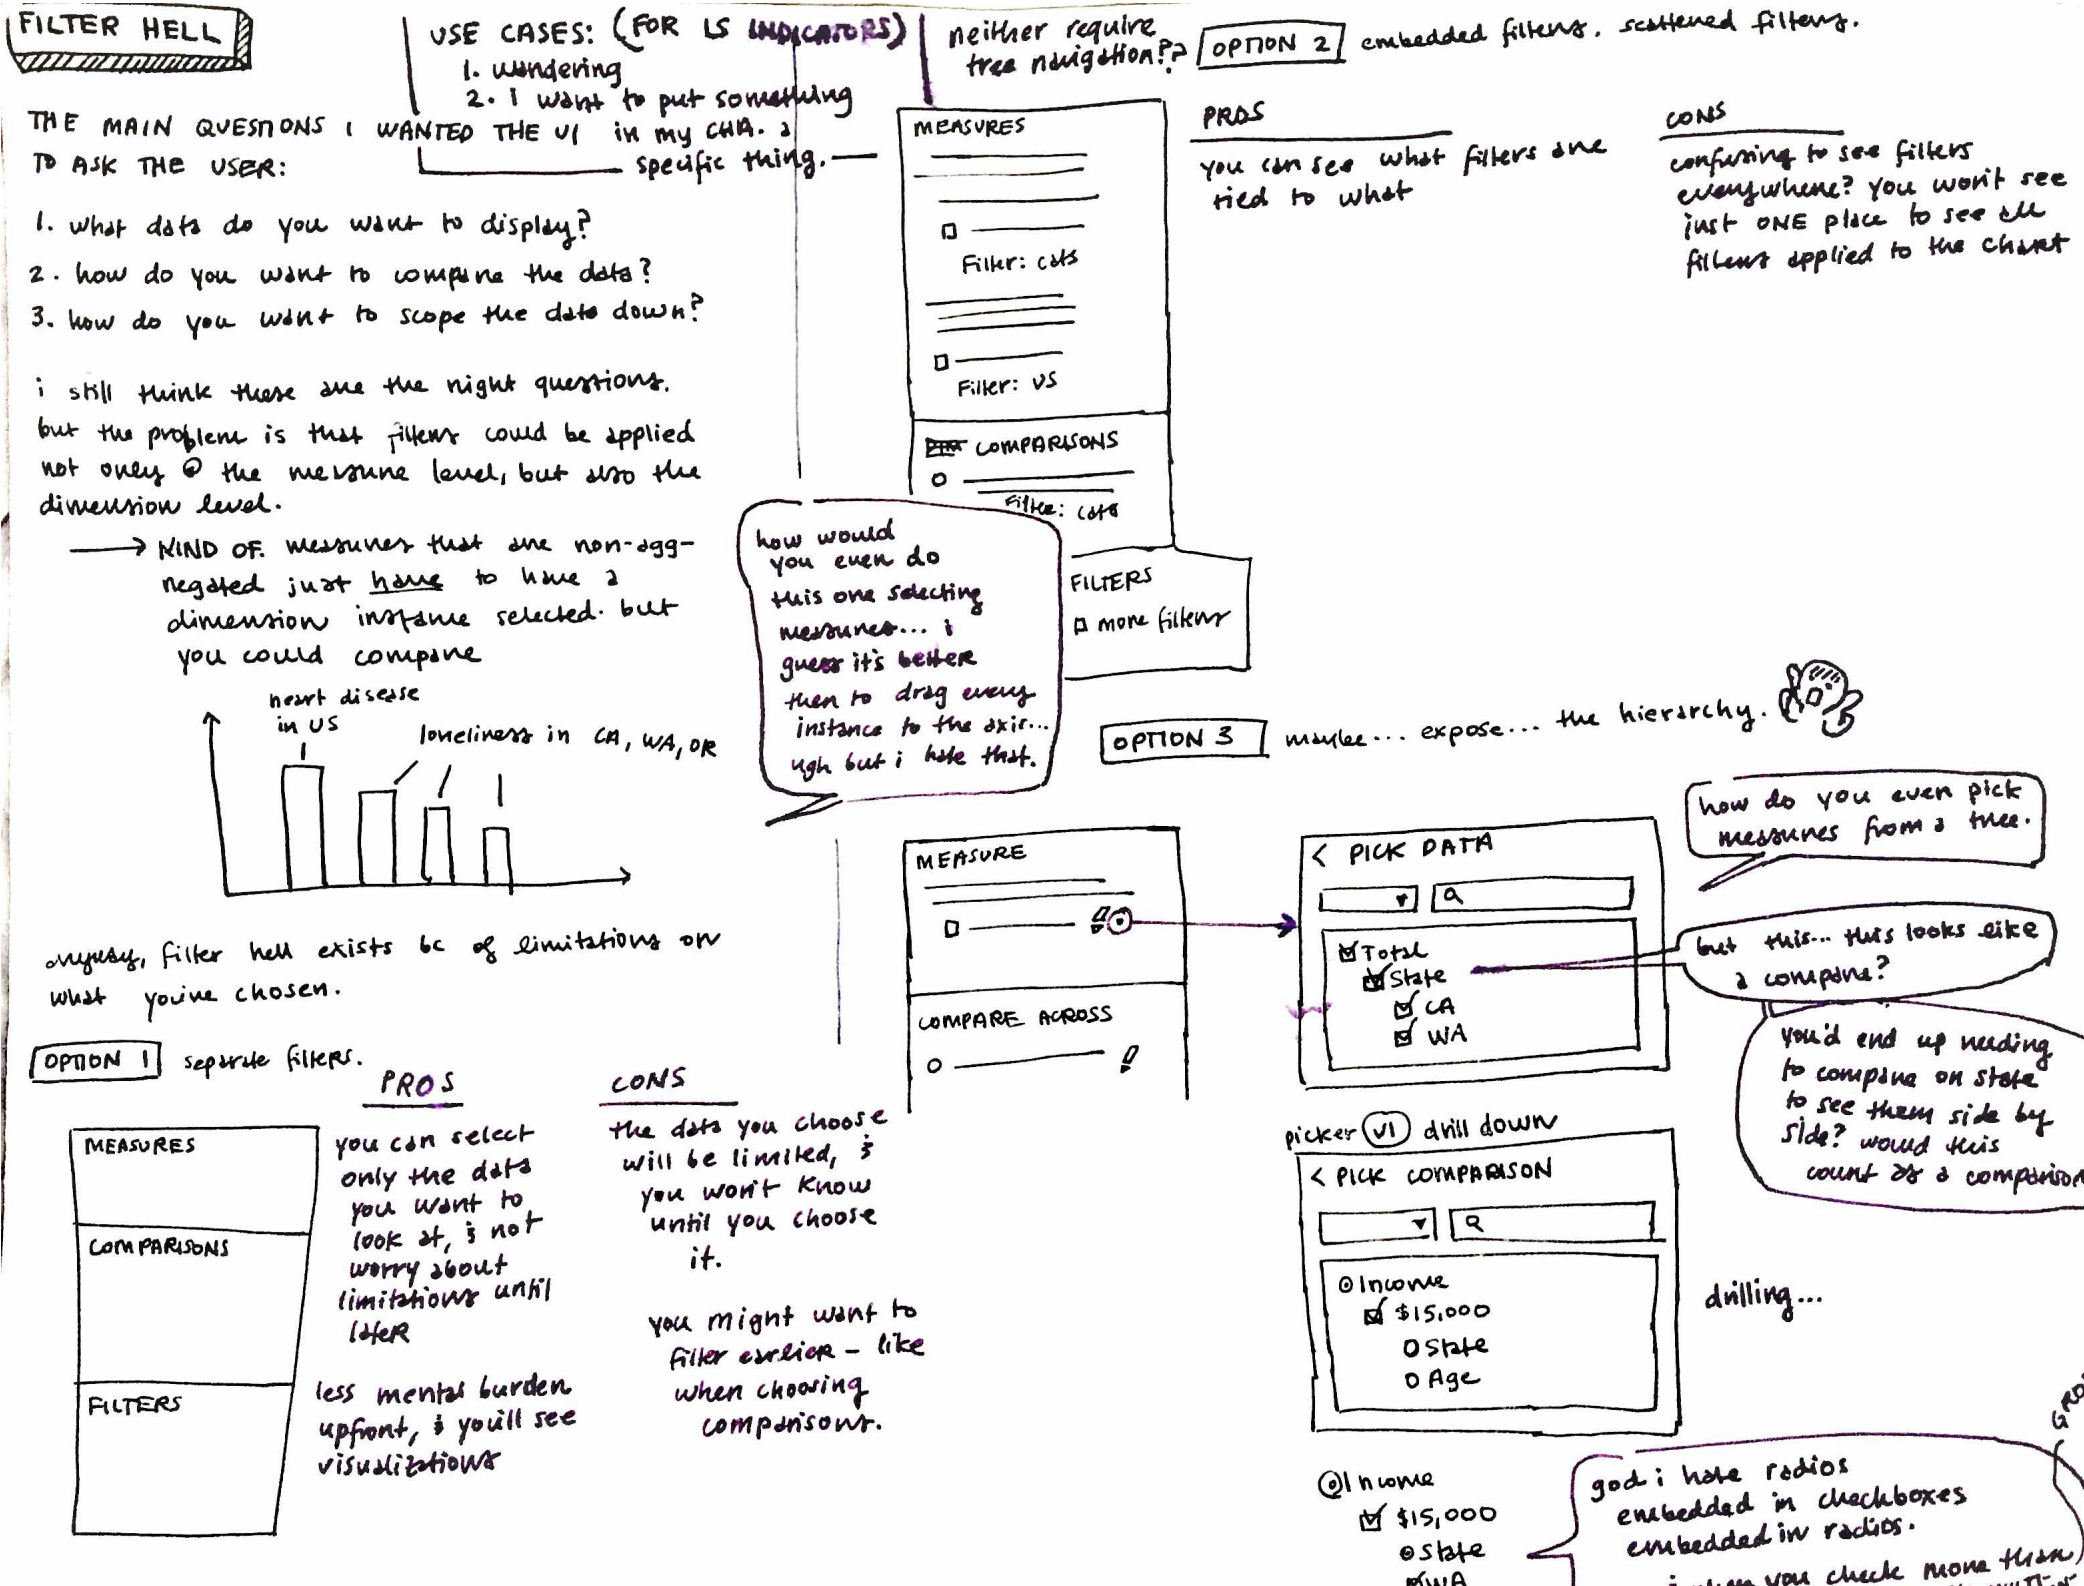 FILTER HELL
USE CASES: (FOR LS INDICATORS)
1. wandering
2. i want to put something
in my CHA. a
specific thing.
neither require
tree navigation??
THE MAIN QUESTIONS I WANTED THE UI
TO ASK THE USER:
1. what data do you want to display?
2. how do you want to compare the data?
3. how do you want to scope the data down?
i still think these are the right questions.
but the problem is that filters could be applied
not only @ the measure level, but also the
dimension level.
→ KIND OF. measures that are non-agg-
regated just have to have a
dimension instance selected. but
you could compare
heart disease
in US
loneliness in CA, WA, OR
anyway, filter hell exists bc of limitations on
what you've chosen.
OPTION 1
separate filters.
MEASURES
COMPARISONS
FILTERS
PROS
you can select
only the data
you want to
look at, & not
worry about
limitations until
later
less mental burden
upfront, & you'll see
visualizations
CONS
the data you choose
will be limited, &
you won't know
until you choose
it.
you might want to
filter earlier – like
when choosing
comparisons.
OPTION 2
embedded filters. scattered filters.
MEASURES
Filter: cats
Filter: US
COMPARISONS
Filter: cats
FILTERS
more filters
PROS
you can see what filters are
tied to what
CONS
confusing to see filters
everywhere? you won't see
just ONE place to see all
filters applied to the chart
how would
you even do
this one selecting
measures... i
guess it's better
then to drag every
instance to the axis...
ugh but i hate that.
OPTION 3
maybe... expose... the hierarchy.
MEASURE
COMPARE ACROSS
< PICK DATA
Total
State
CA
WA
how do you even pick
measures from a tree.
but this... this looks like
a compare?
you'd end up needing
to compare on state
to see them side by
side? would this
count as a comparison
picker v1 drill down
< PICK COMPARISON
Income
$15,000
State
Age
drilling...
Income
$15,000
State
WA
god i hate radios
embedded in checkboxes
embedded in radios.
when you check more than